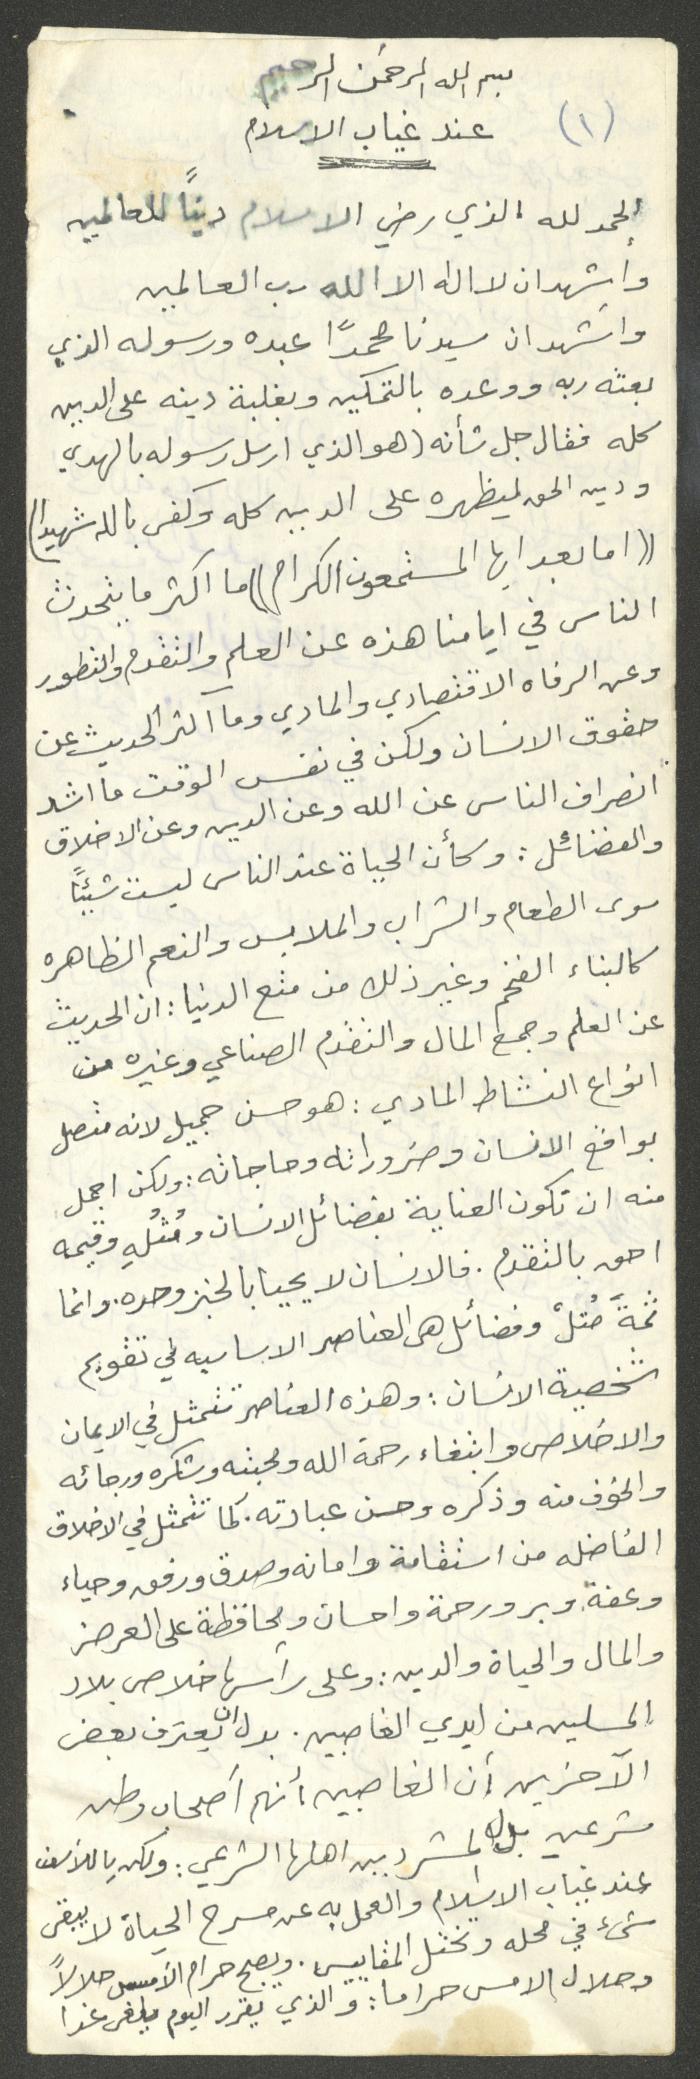 بسم الله الرحمن الرحيم
(١) عند غياب الاسلام
الحمد لله الذي رضي الاسلام دينًا للعالمين
وأشهد ان لا اله الا الله رب العالمين
واشهد ان سيدنا محمدًا عبده ورسوله الذي
بعثه ربه ووعده بالتمكين وبغلبة دينه على الدين
كله فقال جل شأنه (هو الذي ارسل رسوله بالهدى
ودين الحق ليظهره على الدين كله وكفى بالله شهيدا)
((اما بعد ايها المستمعون الكرام)) ما اكثر ما يتحدث
الناس في ايامنا هذه عن العلم والتقدم والتطور
وعن الرفاه الاقتصادي والمادي وما اكثر الحديث عن
حقوق الانسان ولكن في نفس الوقت ما اشد
انصراف الناس عن الله وعن الدين وعن الاخلاق
والفضائل : وكأن الحياة عند الناس ليست شيئًا
سوى الطعام والشراب والملابس والنعم الظاهره
كالبناء الفخم وغير ذلك من متع الدنيا : ان الحديث
عن العلم وجمع المال والتقدم الصناعي وغيره من
انواع النشاط المادي : هو حسن جميل لانه متصل
بواقع الانسان وضروراته وحاجاته : ولكن اجمل
منه ان تكون العناية بفضائل الانسان ومُثُلُهِ وقيمه
احق بالتقدم . فالانسان لا يحيا بالخبز وحده . وانما
ثمةَ مُثلْ وفضائل هي العناصر الاساسيه في تقويم
شخصية الانسان : وهذه العناصر تتمثل في الايمان
والاخلاص وابتغاء رحمة الله ومحبته وشكره ورجائه
والخوف منه وذكره وحسن عبادته . كما تتمثل في الاخلاق
الفاضله من استقامة وامانه وصدق ورفق وحياء
وعفة وبر ورحمة واحسان ومحافظة على العرض
والمال والحياة والدين : وعلى رأسها خلاص بلاد
المسلمين من ايدي الغاصبين . بدل ان يعترف بعض
الآخرين أن الغاصبين أنهم أصحاب وطن
شرعين بدل المشردين اهلها الشرعي : ولكن يا للأسف
عند غياب الاسلام والعمل به عن مسرح الحياة لا يبقى
شيء في محله وتختل المقاييس . ويصبح حرام الأمس حلالاً
وحلال الامس حراما : والذي يقرر اليوم يلغى غدا